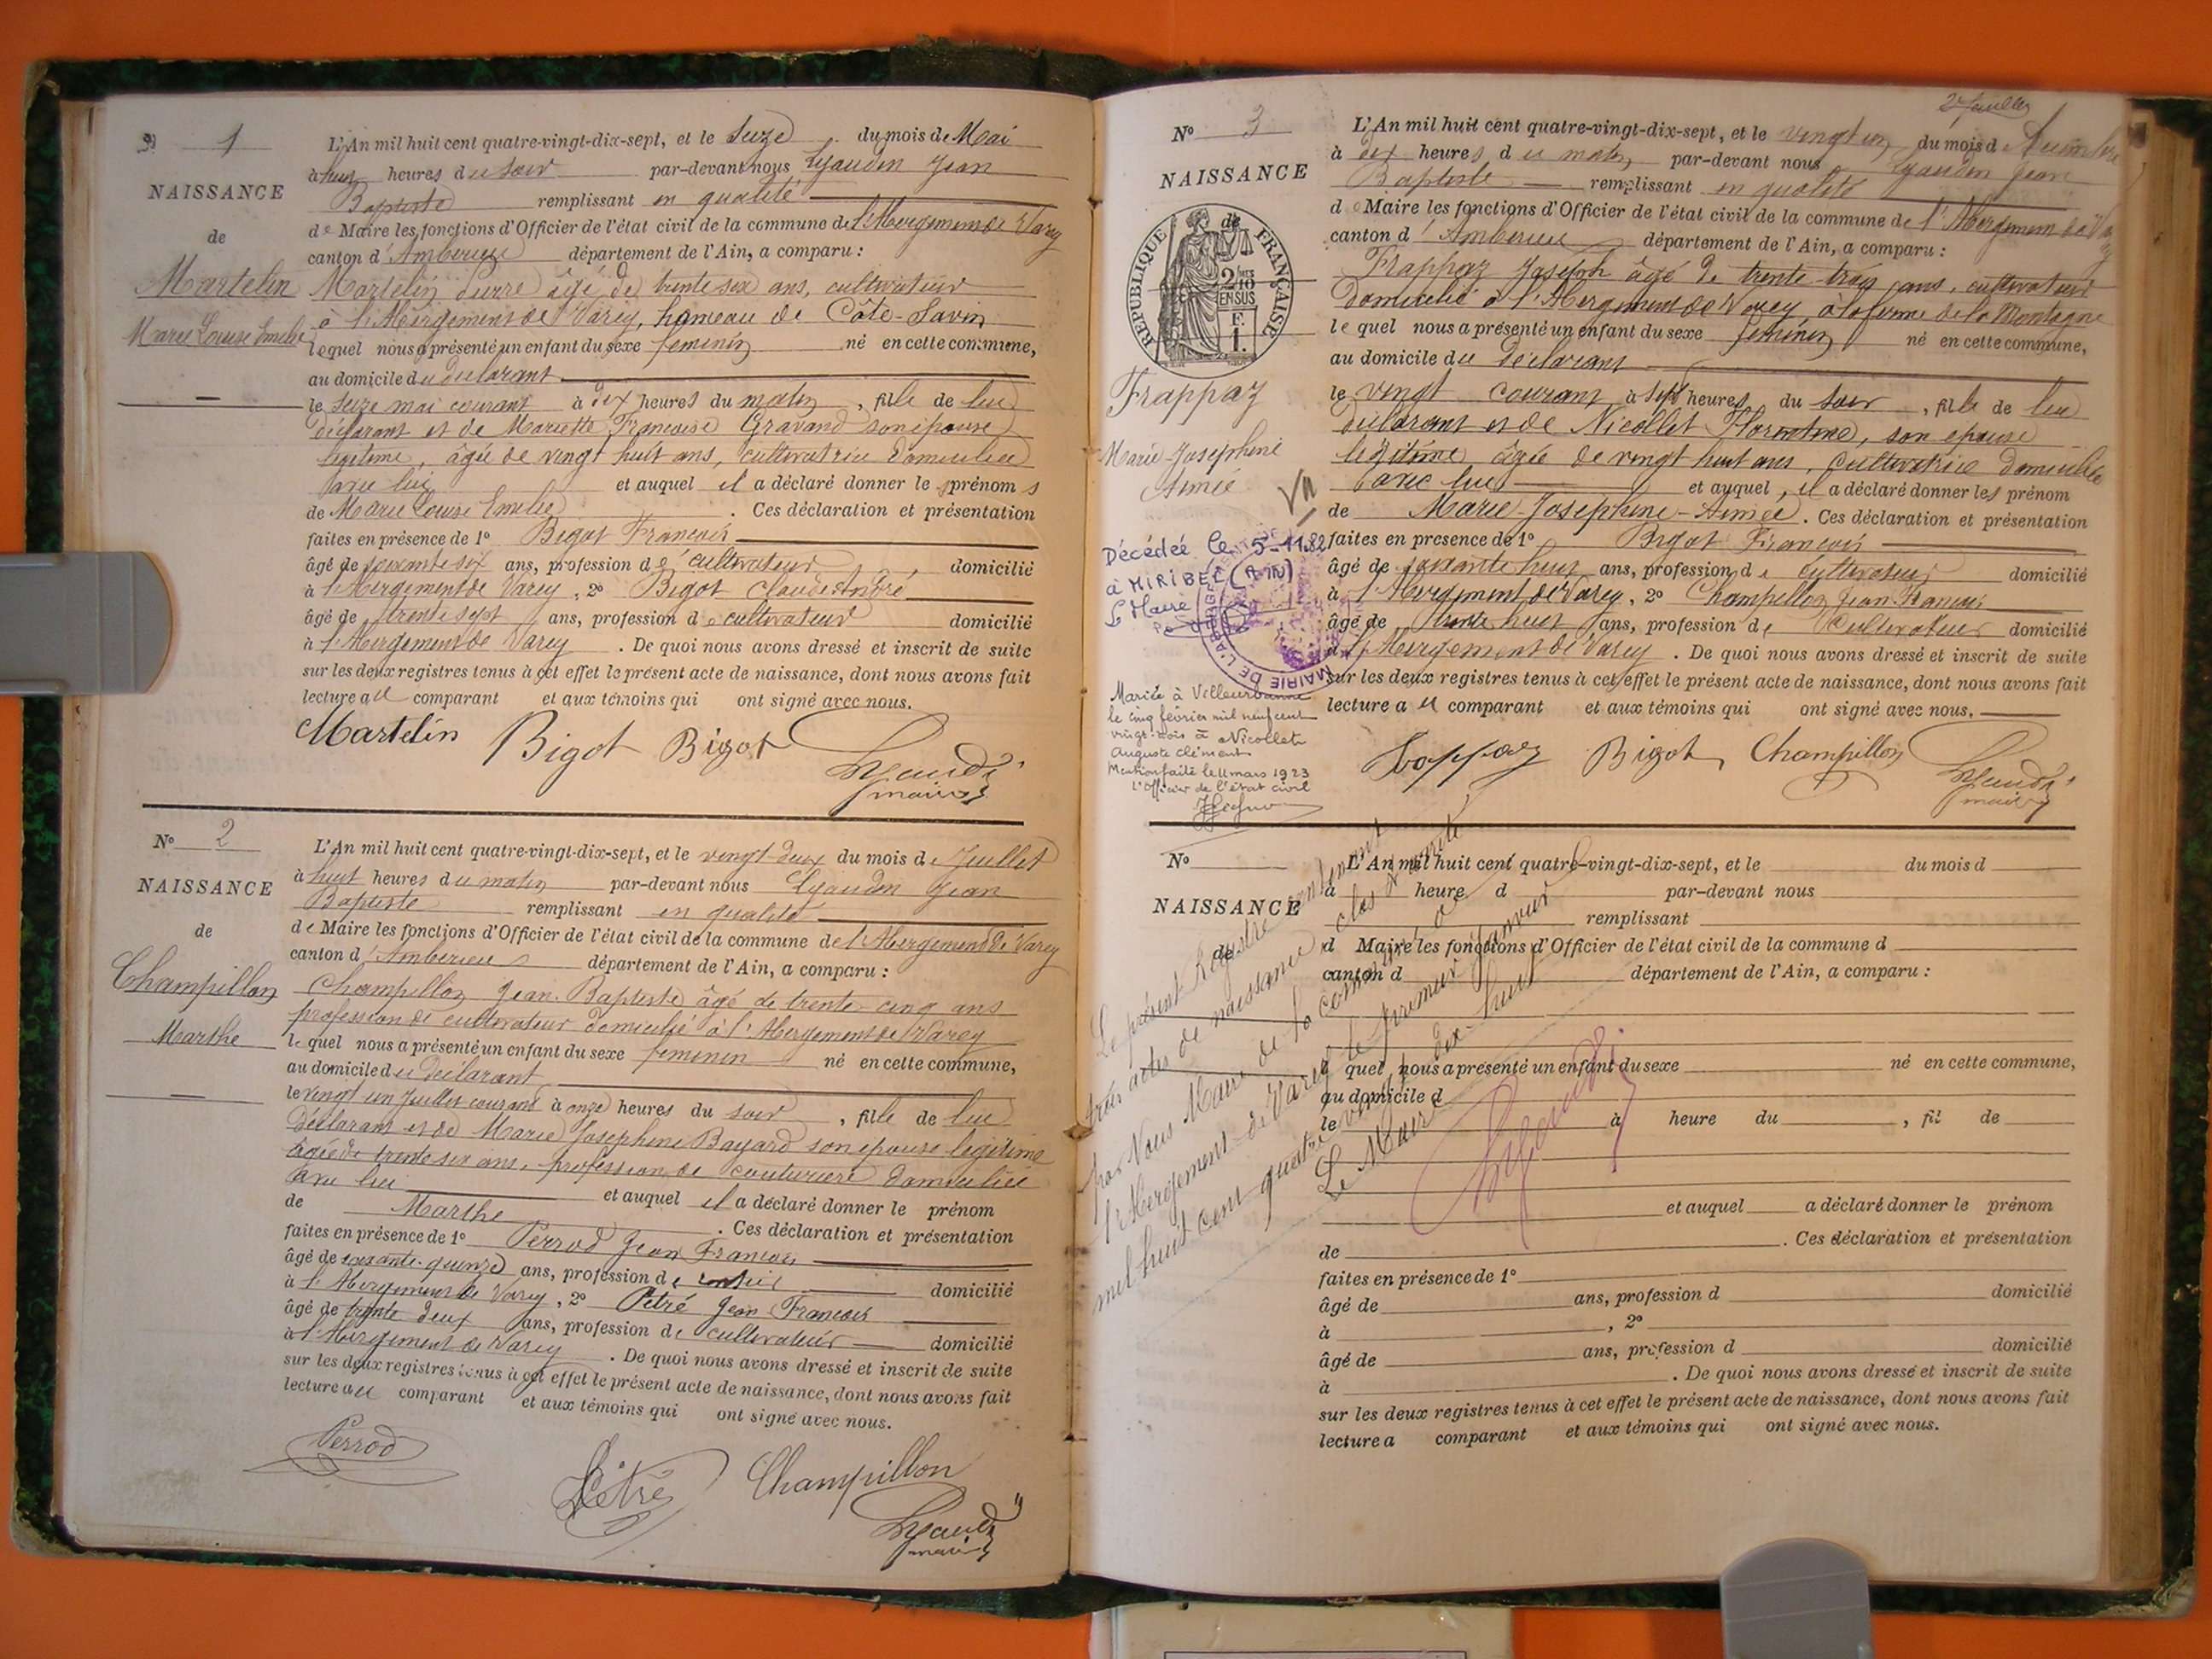 N° 1
NAISSANCE
de
Martelin
Marie Louise Emelie
L'An mil huit cent quatre-vingt-dix-sept, et le seize du mois de Mai
à huit heures du soir par-devant nous Lyaudin Jean
Baptiste remplissant en qualité
de Maire les fonctions d'Officier de l'état civil de la commune de l'Abergement de Varey
canton d'Ambérieu département de l'Ain, a comparu :
Martelin Pierre âgé de trente six ans, cultivateur
à l'Abergement de Varey, hameau de Côte-Savin
lequel nous a présenté un enfant du sexe féminin né en cette commune,
au domicile du déclarant
le seize mai courant à dix heures du matin, fille de lui
déclarant et de Mariette Françoise Gravand son épouse
légitime, âgée de vingt huit ans, cultivatrice domiciliée
avec lui et auquel il a déclaré donner les prénoms
de Marie Louise Emelie. Ces déclaration et présentation
faites en présence de 1° Bigot François
âgé de soixante six ans, profession de cultivateur, domicilié
à l'Abergement de Varey, 2° Bigot Claude André
âgé de trente sept ans, profession de cultivateur domicilié
à l'Abergement de Varey. De quoi nous avons dressé et inscrit de suite
sur les deux registres tenus à cet effet le présent acte de naissance, dont nous avons fait
lecture au comparant et aux témoins qui ont signé avec nous.
Martelin Bigot Bigot Lyaudin
maire
N° 2
NAISSANCE
de
Champillon
Marthe
L'An mil huit cent quatre-vingt-dix-sept, et le vingt deux du mois de Juillet
à huit heures du matin par-devant nous Lyaudin Jean
Baptiste remplissant en qualité
de Maire les fonctions d'Officier de l'état civil de la commune de l'Abergement de Varey
canton d'Ambérieu département de l'Ain, a comparu :
Champillon Jean-Baptiste âgé de trente-cinq ans
profession de cultivateur domicilié à l'Abergement de Varey
lequel nous a présenté un enfant du sexe féminin né en cette commune,
au domicile du déclarant
le vingt un Juillet courant à onze heures du soir, fille de lui
Déclarant et de Marie Josephine Bayard son épouse légitime
âgée de trente six ans, profession de couturière domiciliée
avec lui et auquel il a déclaré donner le prénom
de Marthe. Ces déclaration et présentation
faites en présence de 1° Perrod Jean François
âgé de soixante-quinze ans, profession de rentier domicilié
à l'Abergement de Varey, 2° Pétré Jean François
âgé de trente deux ans, profession de cultivateur domicilié
à l'Abergement de Varey. De quoi nous avons dressé et inscrit de suite
sur les deux registres tenus à cet effet le présent acte de naissance, dont nous avons fait
lecture au comparant et aux témoins qui ont signé avec nous.
Perrod Pétré Champillon Lyaudin
maire
2e feuille
N° 3
NAISSANCE
de
RÉPUBLIQUE FRANÇAISE
2/10 EN SUS
F.
1.
Frappaz
Marie Josephine
Aimée
Décédée le 5-11.82
à MIRIBEL (AIN)
Le Maire
MAIRIE DE L'ABERGEMENT
Mariée à Villeurbanne
le cinq février mil neuf cent
vingt-trois à Nicollet
Auguste Clément
Mention faite le 11 mars 1923
L'officier de l'état civil
L'An mil huit cent quatre-vingt-dix-sept, et le vingt un du mois de Novembre
à dix heures du matin par-devant nous Lyaudin Jean
Baptiste remplissant en qualité
de Maire les fonctions d'Officier de l'état civil de la commune de l'Abergement de Varey
canton d'Ambérieu département de l'Ain, a comparu :
Frappaz Joseph âgé de trente-trois ans, cultivateur
domicilié à l'Abergement de Varey, à la ferme de la Montagne
lequel nous a présenté un enfant du sexe féminin né en cette commune,
au domicile du déclarant
le vingt courant à sept heures du soir, fille de lui
déclarant et de Nicollet Florentine, son épouse
légitime âgée de vingt huit ans, cultivatrice domiciliée
avec lui et auquel, il a déclaré donner les prénom
de Marie-Josephine-Aimée. Ces déclaration et présentation
faites en présence de 1° Bigot François
âgé de soixante huit ans, profession de cultivateur domicilié
à l'Abergement de Varey, 2° Champillon Jean-François
âgé de trente huit ans, profession de cultivateur domicilié
à l'Abergement de Varey. De quoi nous avons dressé et inscrit de suite
sur les deux registres tenus à cet effet le présent acte de naissance, dont nous avons fait
lecture au comparant et aux témoins qui ont signé avec nous.
Frappaz Bigot Champillon Lyaudin
maire
N°
NAISSANCE
de
L'An mil huit cent quatre-vingt-dix-sept, et le du mois d
à heure d par-devant nous
remplissant
d Maire les fonctions d'Officier de l'état civil de la commune d
canton d département de l'Ain, a comparu :
l quel nous a présenté un enfant du sexe né en cette commune,
au domicile d
le à heure du , fil de
et auquel a déclaré donner le prénom
de . Ces déclaration et présentation
faites en présence de 1°
âgé de ans, profession d domicilié
à , 2°
âgé de ans, profession d domicilié
à . De quoi nous avons dressé et inscrit de suite
sur les deux registres tenus à cet effet le présent acte de naissance, dont nous avons fait
lecture a comparant et aux témoins qui ont signé avec nous.
Le présent Registre contenant
trois actes de naissance clos et arrêté
par Nous Maire de la commune de
l'Abergement de Varey le premier janvier
mil huit cent quatre vingt dix-huit
Le Maire
Lyaudin